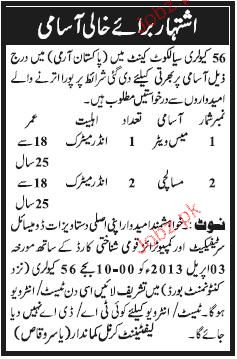 اشتہار برائے خالی آسامی
56 کیولری سیالکوٹ کینٹ میں (پاکستان آرمی) میں درج
ذیل آسامی پر بھرتی کیلئے دی گئی شرائط پر پورا اترنے والے
امیدواروں سے درخواستیں مطلوب ہیں۔
نمبر شمار آسامی تعداد اہلیت عمر
1 میس ویٹر 1 انڈر میٹرک 18 سے
25 سال
2 مسالچی 2 انڈر میٹرک 18 سے
25 سال
نوٹ:۔ خواہشمند امیدوار اپنی اصلی دستاویزات ڈومیسائل
سرٹیفکیٹ اور کمپیوٹرائزڈ قومی شناختی کارڈ کے ساتھ مورخہ
03 اپریل 2013ء کو 10-00 بجے 56 کیولری (نزد
کنٹونمنٹ بورڈ) میں تشریف لائیں اسی دن ٹیسٹ/ انٹرویو
ہوگا۔ ٹیسٹ/ انٹرویو کیلئے کوئی ٹی اے/ ڈی اے نہیں دیا
جائے گا۔ لیفٹیننٹ کرنل کمانڈار (یاسر وقاص)